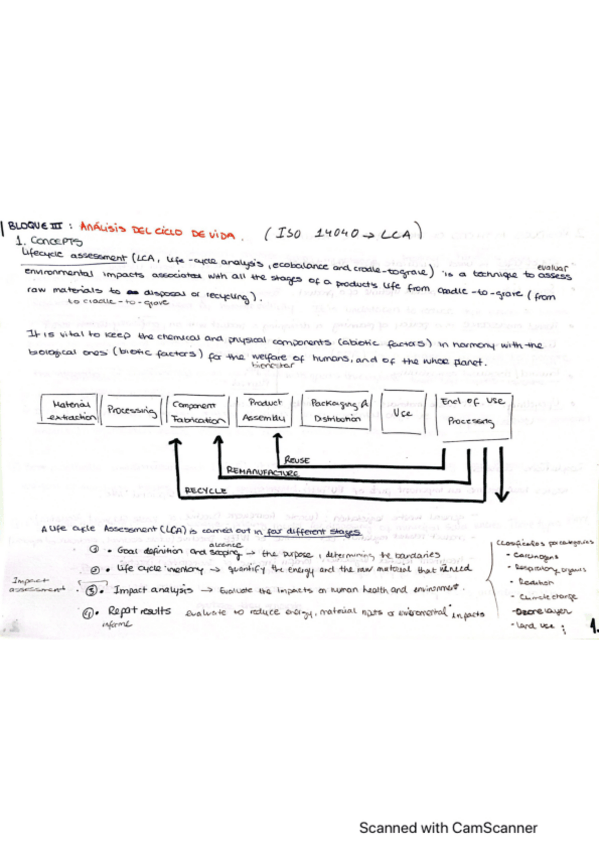 BLOQUE III : ANÁLISIS DEL CICLO DE VIDA. (ISO 14040 → LCA)
1. CONCEPTS
evaluar
Lifecycle assessment (LCA, life-cycle analysis, ecobalance and cradle-to-grave) is a technique to assess
environmental impacts associated with all the stages of a product's life from cradle-to-grave (from
raw materials to disposal or recycling).
to cradle-to-grave
It is vital to keep the chemical and physical components (abiotic factors) in harmony with the
biological ones (biotic factors) for the welfare of humans, and of the whole planet.
bienestar
Material extraction
Processing
Component Fabrication
Product Assembly
Packaging & Distribution
Use
End of Use Processing
REUSE
REMANUFACTURE
RECYCLE
A Life Cycle Assessment (LCA) is carried out in four different stages
alcance
① • Goal definition and scoping → the purpose, determining the boundaries
② • Life cycle inventory → quantify the energy and the raw material that
Impact assessment
③ • Impact analysis → Evaluate the impacts on human health and environment.
④ • Report results evaluate to reduce energy, material or environmental impacts
informe
- Carcinogens
- Respiratory organics
- Radiation
- Climate change
- Ozone layer
- Land use
1.
Scanned with CamScanner